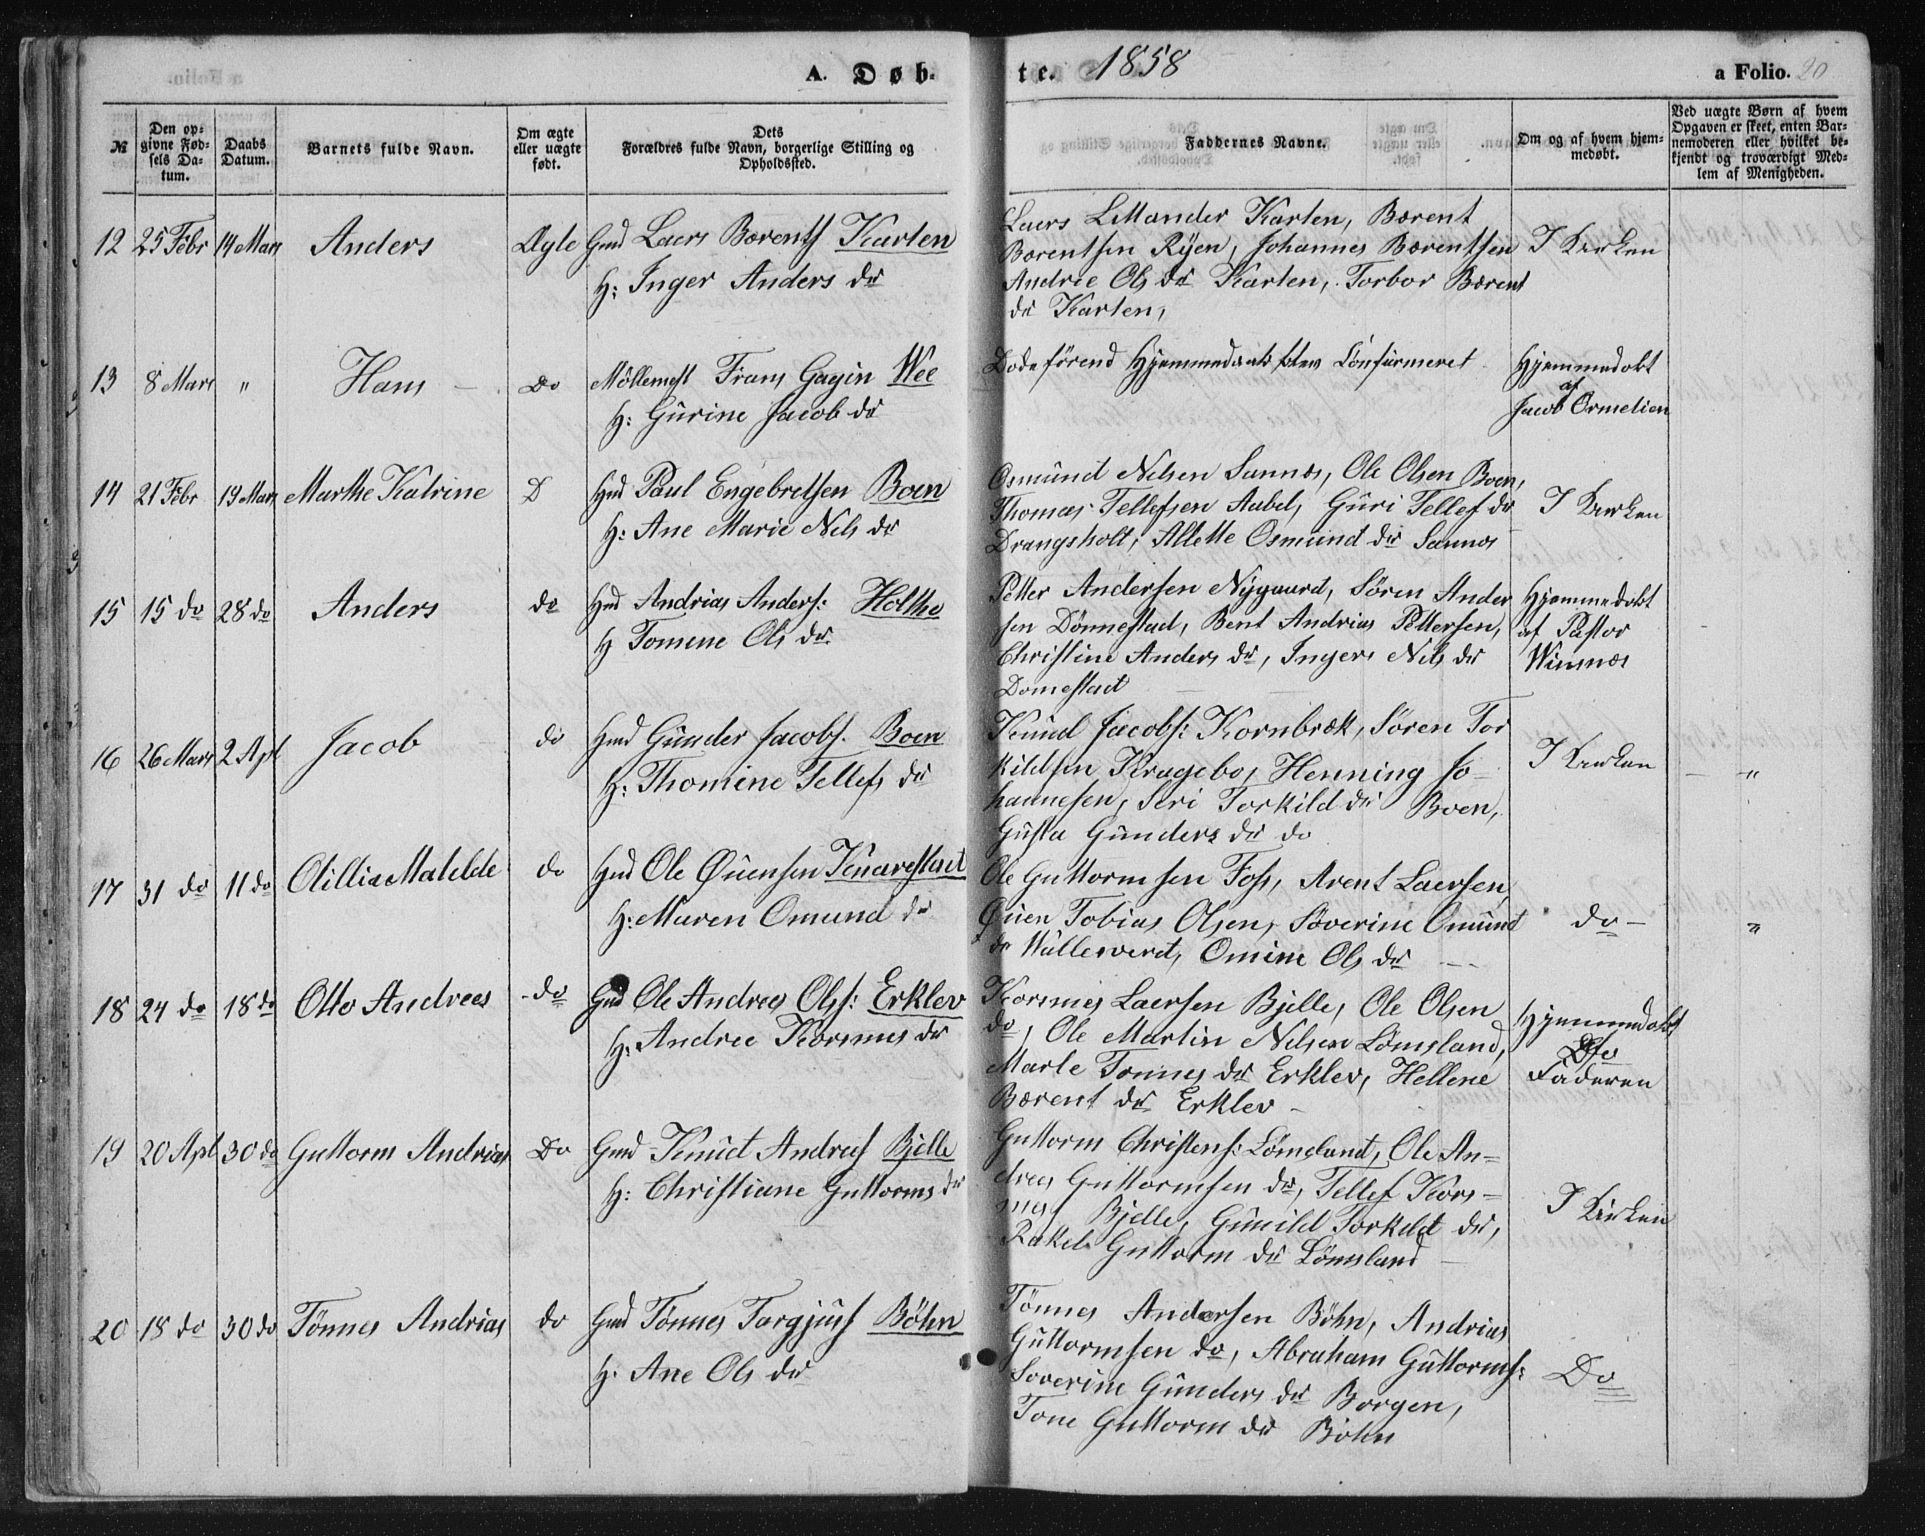 A. Døb-
te. 1858
a Folio. 20
№
Den opgivne Fødsels Datum.
Daabs Datum.
Barnets fulde Navn.
Om ægte eller uægte født.
Dets Forældres fulde Navn, borgerlige Stilling og Opholdssted.
Faddernes Navne.
Om og af hvem hjemmedøbt.
Ved uægte Børn af hvem Opgaven er skeet, enten Barnemoderen eller hvilket bekjendt og troværdigt Medlem af Menigheden.
12 25 Febr 14 Mars Anders Ægte Gmd Laers Bærents Karten
H: Inger Anders dr
Laers Karten, Bærent
Bærentsen Ryen, Johannes Bærentsen
Andrie Ols dr Karten, Torbor Bærent
dr Karten,
I Kirken
13 8 Mars " Hans Do Möllemest Frans Gagin Wee
H: Gurine Jacob dr
Döde förend Hjemmedaab blev Confirmeret
Hjemmedøbt
af
Jacob Ormelien
14 21 Febr 19 Mars Marthe Katrine D Hmd Paul Engebretsen Boen
H: Ane Marie Nels dr
Osmund Nelsen Sannes, Ole Olsen Boen,
Thomas Tellefsen Aabel, Guri Tellef dr
Drangsholt, Allette Osmund dr Sannes
I Kirken
15 15 do 28 do Anders do Hmd Andrias Anders: Holthe
H Tomine Ols dr
Petter Andersen Nygaard, Søren Ander
sen Dønnestad, Bent Andrias Pettersen,
Christine Anders dr, Inger Nils dr
Domestad
Hjemmedøbt
af Pastor
Winsnes
16 26 Mars 2 Apl Jacob do Hmd Gunder Jacobs. Boen
H: Thomine Tellefs dr
Knud Jacobs: Kornbræk, Søren Tor
kildsen Kragebo, Henning Jo-
hannesen, Seri Torkild dr Boen,
Gusta Gunders dr do
I Kirken — "
17 31 do 11 do Otillia Matelde do Hmd Ole Øuensen Knarestad
H: Maren Omund dr
Ole Guttormsen Foss, Arent Laersen,
Øuen Tobias Olsen, Severine Omund
dr Wallesverd, Omine Ols dr
do — "
18 24 do 18 do Otto Andrees do Gmd Ole Andrees Ols: Erklev
H: Andree Korsmes dr
Korsmes Laersen Bjelle, Ole Olsen
do, Ole Martin Nelsen Lømsland,
Marte Tønnes dr Erklev, Hellene
Bærent dr Erklev
Hjemmedøbt
Faderen
19 20 Apl 30 do Guttorm Andrias Do Gmd Knud Andrees Bjelle
H: Christiane Guttorms dr
Guttorm Christens: Lømsland, Ole An=
drees Guttormsen do, Tellef Kors=
mes Bjelle, Gunild Torkeld dr,
Rakel Guttorm dr Lømsland
I Kirken
20 18 do 30 do Tönnes Andrias do Gmd Tönnes Targjuss Böhn
H. Ane Ols dr
Tönnes Andersen Böhn, Andrias
Guttormsen do, Abraham Guttorms:
Soverine Gunders dr Borgen,
Tone Guttorm dr Böhn
Do